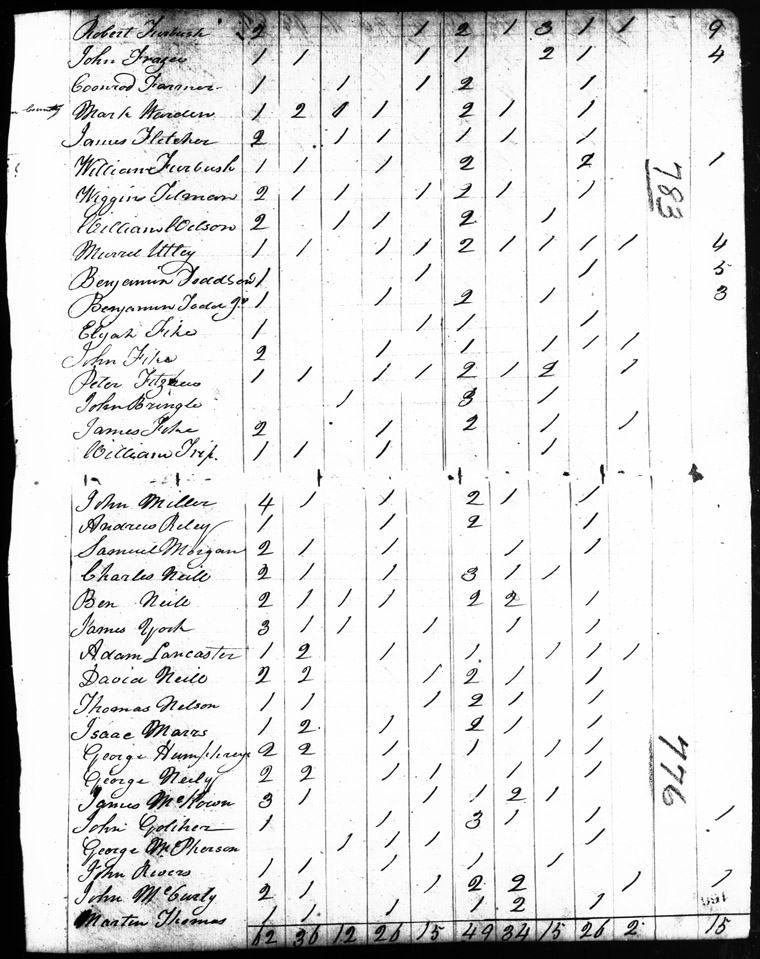 Robert Furbush 2 1 2 1 3 1 1 9
John Frazer 1 1 1 1 2 1 4
Coonrod Farmer 1 1 1 2 1
County Mark Warden 1 2 1 1 2 1 1
James Fletcher 2 1 1 1 1 1
William Furbush 1 1 1 2 2 1
Wiggins Tilman 2 1 1 1 2 1 1
William Wilson 2 1 1 2 1
783
Murrel Utley 1 1 1 1 2 1 1 1 1 4
Benjamin Doddson 1 1 1 5
Benjamin 1 1 2 1 3
Elijah Fike 1 1 1 1
John Fike 2 1 1 1 1 1
Peter 1 1 1 1 2 1 2 1
John Bringle 1 3 1
James Fike 2 1 2 1 1
William Trip 1 1 1 1
John Miller 4 1 1 2 1 1
Andrew Reley 1 1 2 1
Samuel Morgan 2 1 1 1 1
Charles Neill 2 1 1 3 1 1
Ben Neill 2 1 1 1 2 2 1
James York 3 1 1 1 1 1
Adam Lancaster 1 2 1 1 1 1 1
David Neill 2 2 1 2 1 1
Thomas Nelson 1 1 1 2 1 1
Isaac Marrs 1 2 1 2 1 1
George Humphreys 2 2 1 1 1 1
776
George Neily 2 2 1 1 1 1
James McKown 3 1 1 1 2 1
John Goliher 1 1 3 1 1 1
George McPherson 1 1 1 1
John Rivers 1 1 1 1 1
John McCurty 2 1 1 2 2 1 1
Martin Thomas 1 1 1 1 2 1
62 36 12 26 15 49 34 15 26 2 15